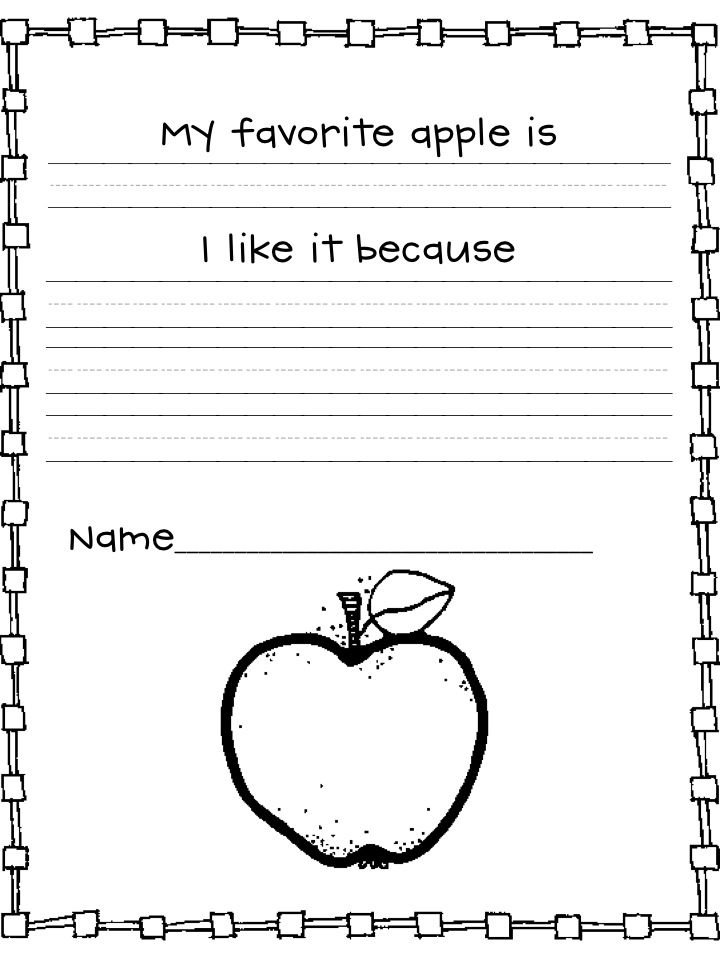 My favorite apple is
I like it because
Name